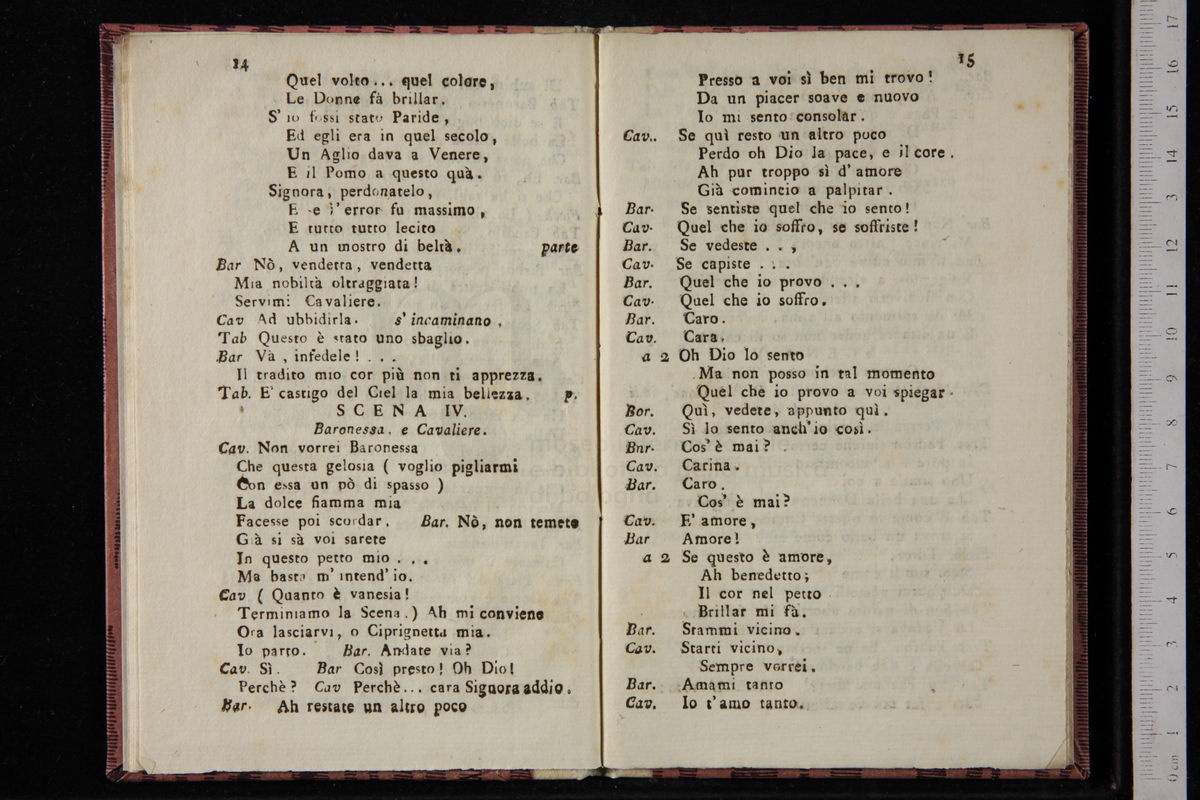 14
Quel volto... quel colore,
Le Donne fà brillar.
S' io fossi stato Paride,
Ed egli era in quel secolo,
Un Aglio dava a Venere,
E il Pomo a questo quà.
Signora, perdonatelo,
E se l'error fu massimo,
E tutto tutto lecito
A un mostro di beltà. parte
Bar Nò, vendetta, vendetta
Mia nobiltà oltraggiata!
Servimi Cavaliere.
Cav Ad ubbidirla. s' incaminano,
Tab Questo è stato uno sbaglio.
Bar Và, infedele! . . .
Il tradito mio cor più non ti apprezza.
Tab. E' castigo del Ciel la mia bellezza. p.
SCENA IV.
Baronessa. e Cavaliere.
Cav. Non vorrei Baronessa
Che questa gelosia ( voglio pigliarmi
Con essa un pò di spasso )
La dolce fiamma mia
Facesse poi scordar. Bar. Nò, non temete
Già si sà voi sarete
In questo petto mio . . .
Ma basta m' intend' io.
Cav ( Quanto è vanesia!
Terminiamo la Scena.) Ah mi conviene
Ora lasciarvi, o Ciprignetta mia.
Io parto. Bar. Andate via?
Cav. Sì. Bar Così presto! Oh Dio!
Perchè? Cav Perchè... cara Signora addio.
Bar. Ah restate un altro poco
15
Presso a voi sì ben mi trovo!
Da un piacer soave e nuovo
Io mi sento consolar.
Cav.. Se quì resto un altro poco
Perdo oh Dio la pace, e il core.
Ah pur troppo sì d' amore
Già comincio a palpitar.
Bar. Se sentiste quel che io sento!
Cav. Quel che io soffro, se soffriste!
Bar. Se vedeste . . ,
Cav. Se capiste . . .
Bar. Quel che io provo . . .
Cav. Quel che io soffro.
Bar. Caro.
Cav. Cara.
a 2 Oh Dio lo sento
Ma non posso in tal momento
Quel che io provo a voi spiegar.
Bor. Quì, vedete, appunto quì.
Cav. Sì lo sento anch'io così.
Bnr. Cos' è mai?
Cav. Carina.
Bar. Caro.
Cos' è mai?
Cav. E' amore,
Bar Amore!
a 2 Se questo è amore,
Ah benedetto;
Il cor nel petto
Brillar mi fà.
Bar. Stammi vicino.
Cav. Starti vicino,
Sempre vorrei.
Bar. Amami tanto
Cav. Io t'amo tanto.
0 cm 1 2 3 4 5 6 7 8 9 10 11 12 13 14 15 16 17